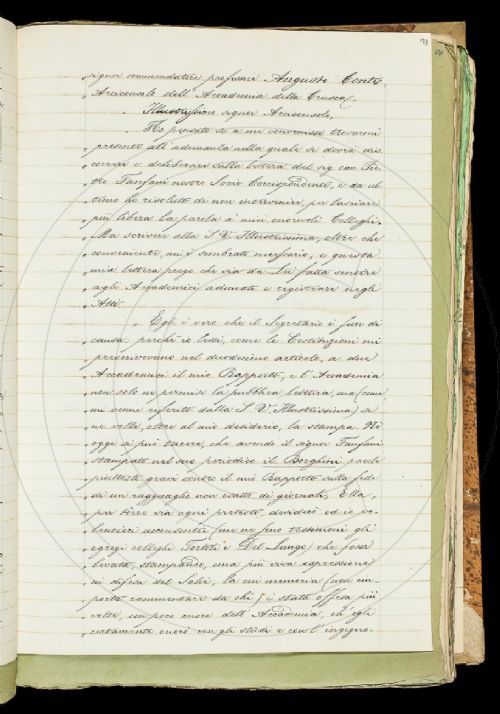 123
„ signor commendatore professore Augusto Conti,
„ Arciconsolo dell'Accademia della Crusca.
„ Illustrissimo signor Arciconsolo,
„ Ho pensato se a me convenisse trovarmi
„ presente all'adunanza nella quale si dovrà dis
„ correre e deliberare sulla lettera del sig. cav. Pie
„ tro Fanfani nostro Socio Corrispondente, e da ul
„ timo ho risoluto di non intervenire, per lasciare
„ più libera la parola a' miei onorevoli Colleghi.
„ Ma scrivere alla S. V. Illustrissima, oltre che
„ conveniente, mi è sembrato necessario, e questa
„ mia lettera prego che sia da Lei fatta sentire
„ agli Accademici adunati e registrare negli
„ Atti.
„ Egli è vero che il Segretario è fuor di
„ causa: perchè io lessi, come le Costituzioni mi
„ prescrivevano nel duodecimo articolo, a due
„ Accademici il mio Rapporto, e l'Accademia
„ non solo ne permise la pubblica lettura, ma (come
„ mi venne riferito dalla S. V. Illustrissima) a
„ ne volle, oltre al mio desiderio, la stampa. Nè
„ oggi si può tacere, che avendo il signor Fanfani
„ stampate nel suo periodico il Borghini parole
„ piuttosto gravi contro il mio Rapporto sulla fede
„ di un ragguaglio non esatto di giornali, Ella,
„ per torre via ogni pretesto, desiderò ed io vo
„ lentieri acconsentii (me ne sono testimoni gli
„ egregi colleghi Tortoli e Del Lungo) che fosse
„ levata, stampando, una più viva espressione
„ in difesa del Salvi, la cui memoria (non im
„ porta rammentare da chi) è stata offesa più
„ volte, con poco onore dell'Accademia, ch'egli
„ certamente onorò con gli studi e con l'ingegno.